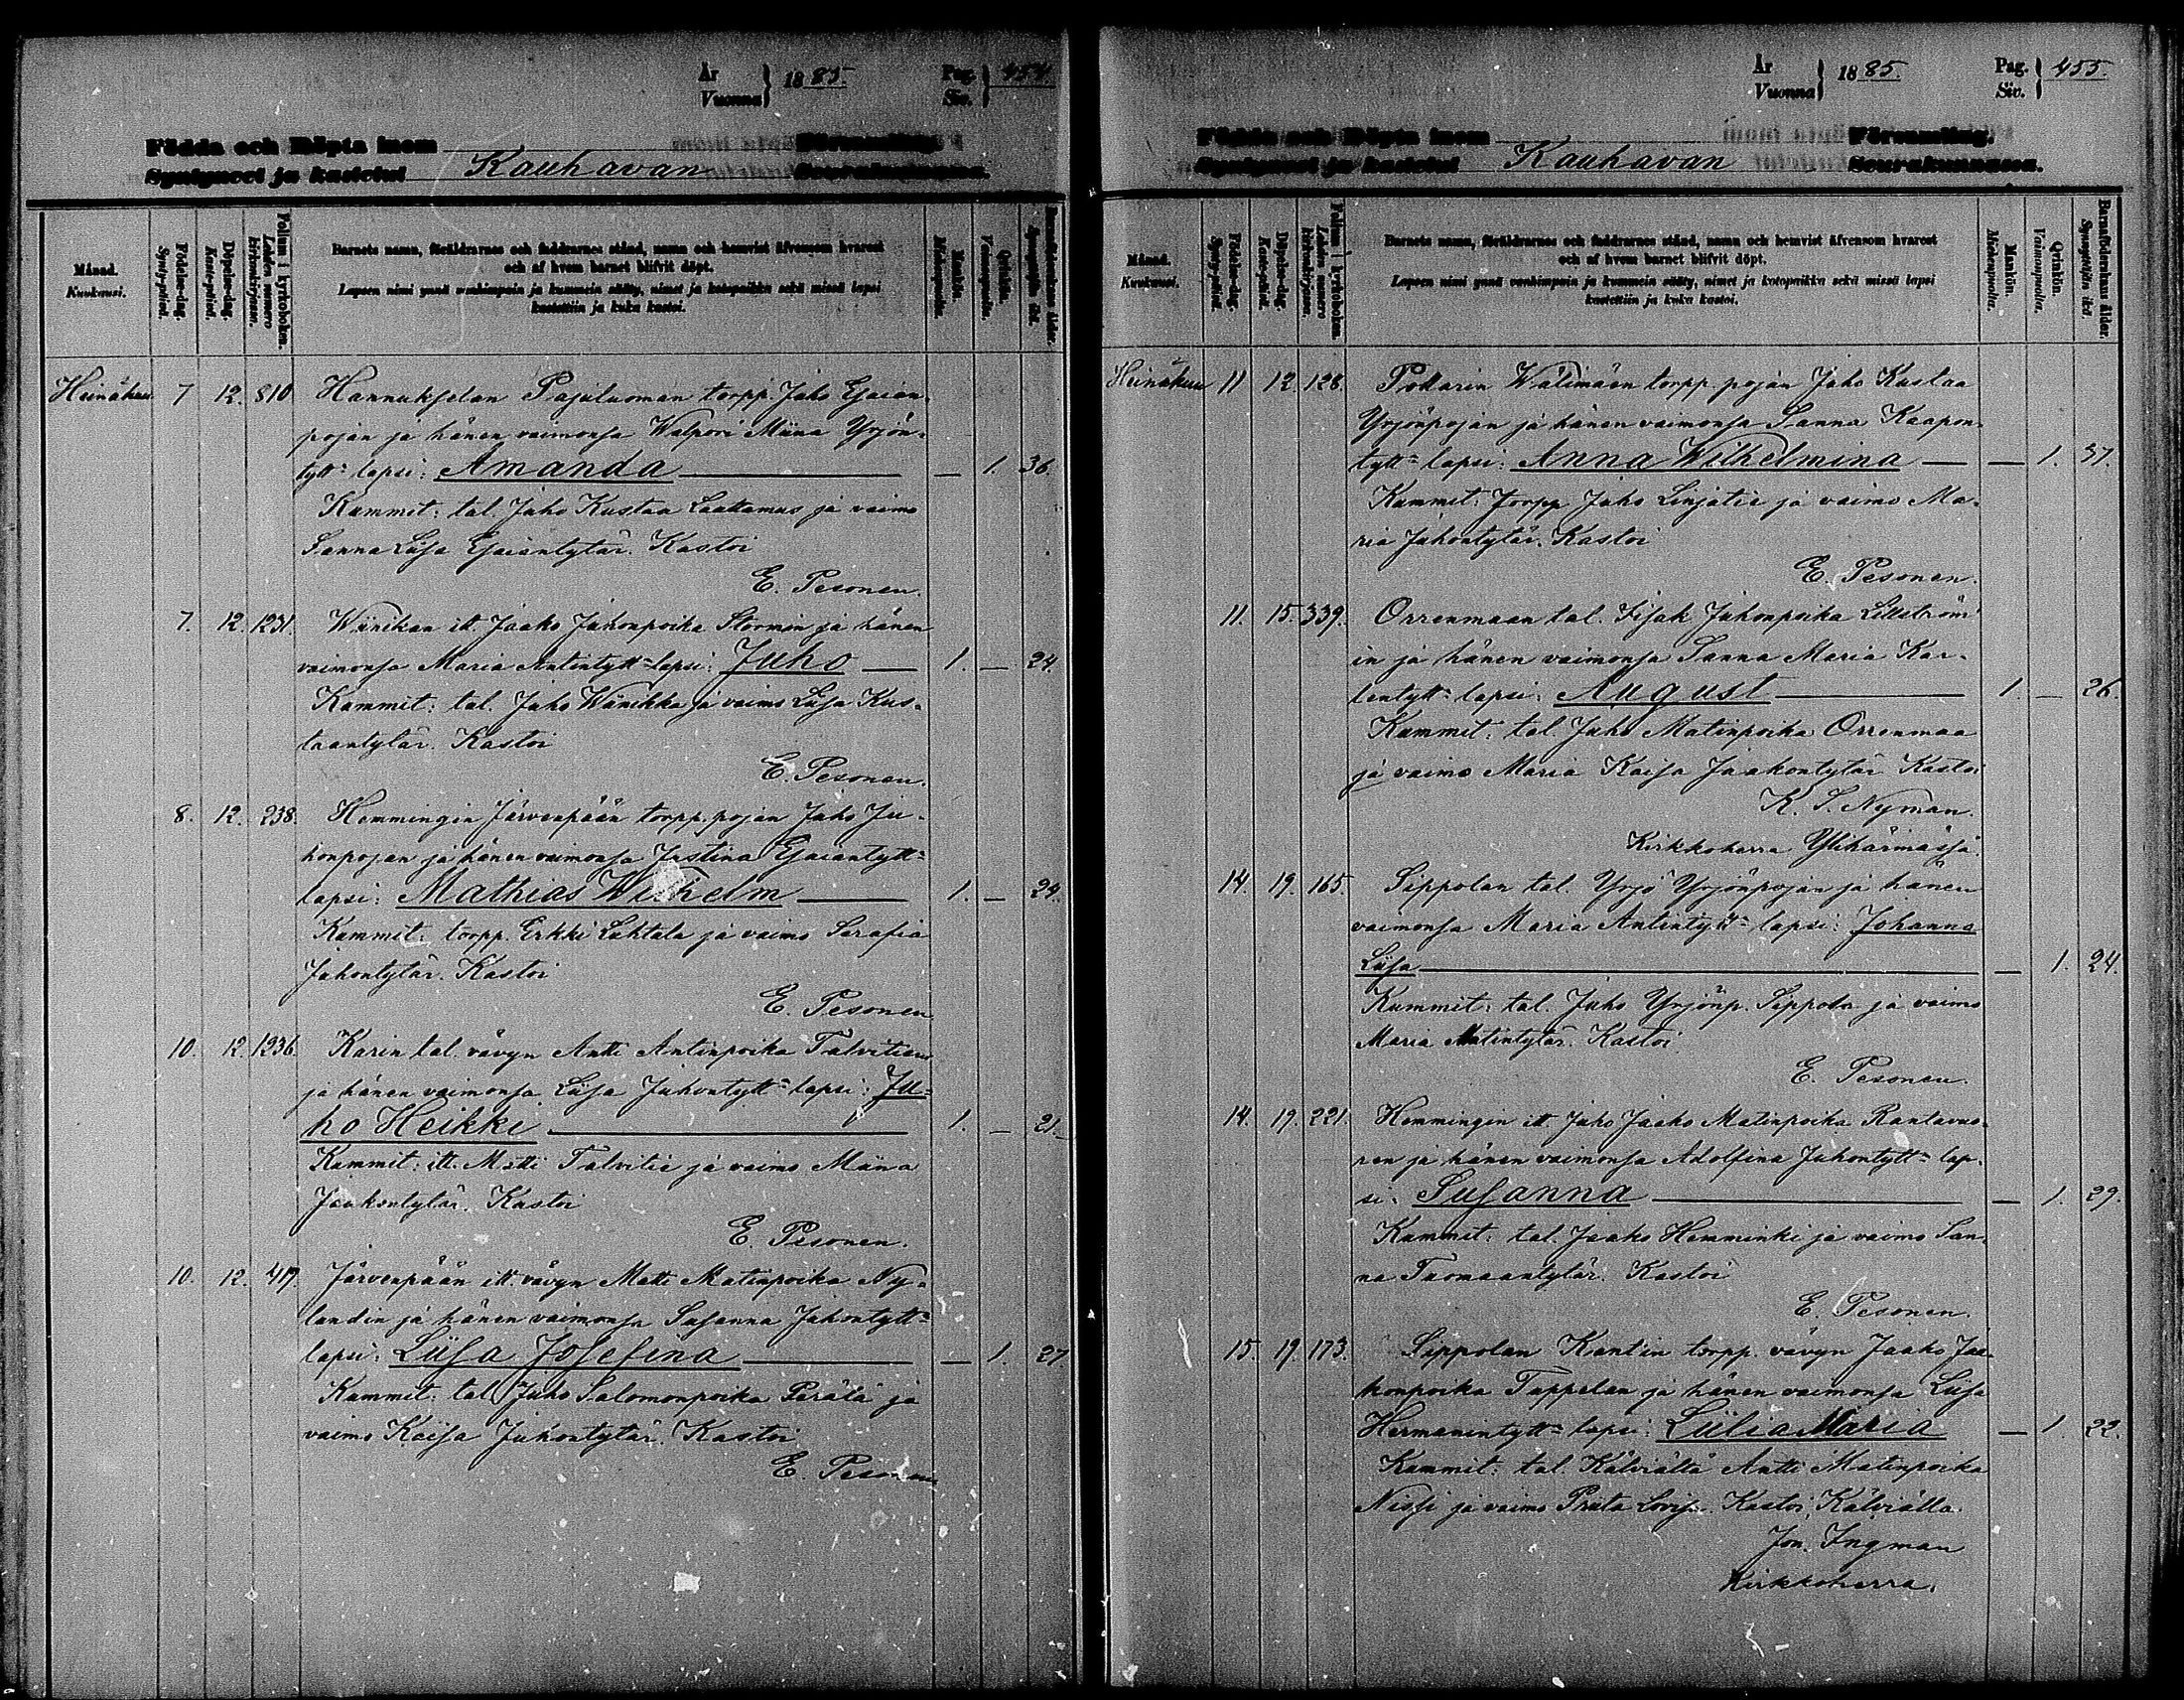 År
Vuonna } 1885. Pag.
Siv. } 454
Födda och Döpta inom Församling.
Syntyneet ja kastetut Kauhavan Seurakunnassa.
Månad.
Kuukausi.
Födelse-dag.
Synty-päivä.
Döpelse-dag.
Kaste-päivä.
Folium i kyrkoboken.
Lehden numero kirkonkirjassa.
Barnets namn, föräldrarnes och faddrarnes stånd, namn och hemvist äfvensom hvarest
och af hvem barnet blifvit döpt.
Lapsen nimi ynnä vanhimpain ja kummein sääty, nimet ja kotopaikka sekä missä lapsi
kastettiin ja kuka kastoi.
Mankön.
Miehenpuolta.
Qvinkön.
Vaimonpuolta.
Barnaföderskans ålder.
Synnyttäjän ikä.
Heinäkuu 7 12. 810 Hannukselan Pajuluoman torpp. Juho Esaian-
pojan ja hänen vaimonsa Walpori Miina Yrjön-
tytt= lapsi: Amanda — 1. 36.
Kummit: tal. Juho Kustaa Laattamus ja vaimo
Sanna Liisa Esaiantytär. Kastoi
E. Pesonen.
7. 12. 1231. Wiinikan itt. Jaako Juhonpoika Stormin ja hänen
vaimonsa Maria Antintytt=lapsi: Juho — 1. — 24.
Kummit: tal. Juho Wiinikka ja vaimo Liisa Kus-
taantytär. Kastoi
E. Pesonen.
8. 12. 238. Hemmingin Järvenpään torpp. pojan Juho Ju-
honpojan ja hänen vaimonsa Justiina Esaiantytt=
lapsi: Mathias Wilhelm — 1. — 24.
Kummit: torpp. Erkki Lahtala ja vaimo Serafia
Juhontytär. Kastoi
E. Pesonen
10. 12. 1236. Karin tal. vävyn Antti Antinpoika Talvitien
ja hänen vaimonsa Liisa Juhontytt= lapsi: Ju-
ho Heikki — 1. — 21.
Kummit: itt. Matti Talvitie ja vaimo Miina
Jaakontytär. Kastoi
E. Pesonen.
10. 12. 417. Järvenpään itt. vävyn Matti Matinpoika Ny-
landin ja hänen vaimonsa Susanna Juhontytt=
lapsi: Liisa Josefina — 1. 27
Kummit: tal. Juho Salomonpoika Perälä ja
vaimo Kaisa Juhontytär. Kastoi
E. Pesonen
År
Vuonna } 1885. Pag.
Siv. } 455.
Födda och Döpta inom Församling.
Syntyneet ja kastetut Kauhavan Seurakunnassa.
Månad.
Kuukausi.
Födelse-dag.
Synty-päivä.
Döpelse-dag.
Kaste-päivä.
Folium i kyrkoboken.
Lehden numero kirkonkirjassa.
Barnets namn, föräldrarnes och faddrarnes stånd, namn och hemvist äfvensom hvarest
och af hvem barnet blifvit döpt.
Lapsen nimi ynnä vanhimpain ja kummein sääty, nimet ja kotopaikka sekä missä lapsi
kastettiin ja kuka kastoi.
Mankön.
Miehenpuolta.
Qvinkön.
Vaimonpuolta.
Barnaföderskans ålder.
Synnyttäjän ikä.
Heinäkuu 11 12 128. Pottarin Wälimäen torpp. pojan Juho Kustaa
Yrjönpojan ja hänen vaimonsa Sanna Kaapon-
tytt= lapsi: Anna Wilhelmina — — 1. 37.
Kummit: Torpp Juho Linjatie ja vaimo Ma-
ria Juhontytär. Kastoi
E. Pesonen.
11. 15. 339. Orrenmaan tal. Iisak Juhonpoika Lillström
in ja hänen vaimonsa Sanna Maria Kar-
lentytt= lapsi: August — 1. — 26.
Kummit: tal. Juho Matinpoika Orrenmaa
ja vaimo Maria Kaisa Jaakontytär Kastoi
K. S. Nyman.
Kirkkoherra Ylihärmässä.
14. 19. 165. Sippolan tal. Yrjö Yrjönpojan ja hänen
vaimonsa Maria Antintytt= lapsi: Johanna
Liisa — — 1. 24.
Kummit: tal. Juho Yrjönp. Sippola ja vaimo
Maria Matintytär. Kastoi
E. Pesonen.
14. 19. 221. Hemmingin itt. Juho Jaako Matinpoika Rantavuo-
ren ja hänen vaimonsa Adolfina Juhontytt= lap-
si: Susanna — — 1. 29.
Kummit: tal. Jaako Hemminki ja vaimo San-
na Tuomaantytär. Kastoi
E. Pesonen.
15. 19. 173. Sippolan Kantin torpp. vävyn Jaako Jaa-
konpoika Tuppelan ja hänen vaimonsa Liisa
Hermanintytt= lapsi: Liilia Maria — 1. 22.
Kummit: tal. Kälviältä Antti Matinpoika
Nissi ja vaimo Priita Lovisa. Kastoi Kälviällä.
Jon. Ingman
Kirkkoherra.